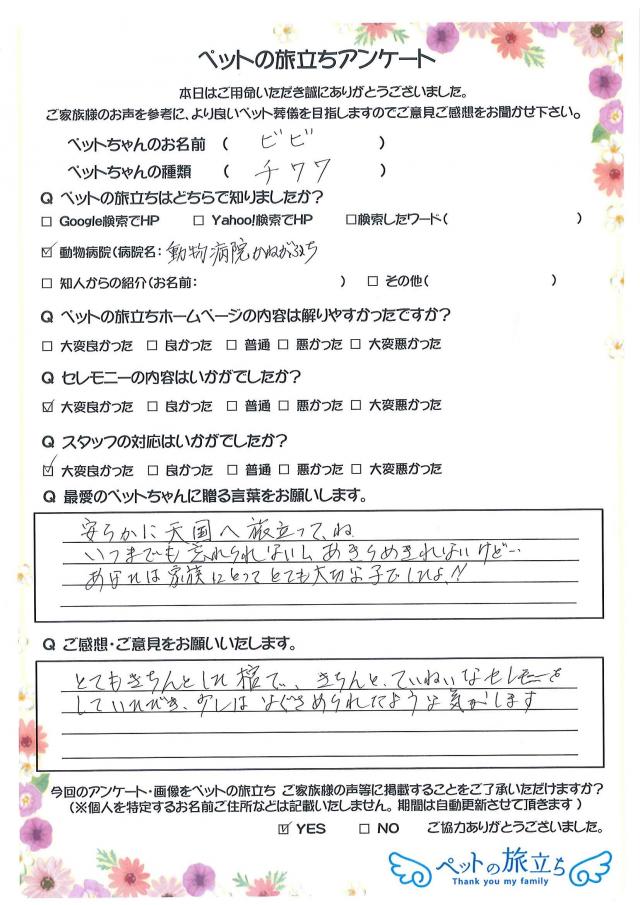 ペットの旅立ちアンケート
本日はご用命いただき誠にありがとうございました。
ご家族様のお声を参考に、より良いペット葬儀を目指しますのでご意見ご感想をお聞かせ下さい。
ペットちゃんのお名前 （ ビビ ）
ペットちゃんの種類 （ チワワ ）
Q ペットの旅立ちはどちらで知りましたか？
□ Google検索でHP □ Yahoo!検索でHP □検索したワード（ ）
☑ 動物病院（病院名：動物病院かねがふち
□ 知人からの紹介（お名前： ） □ その他（ ）
Q ペットの旅立ちホームページの内容は解りやすかったですか？
□ 大変良かった □ 良かった □ 普通 □ 悪かった □ 大変悪かった
Q セレモニーの内容はいかがでしたか？
☑ 大変良かった □ 良かった □ 普通 □ 悪かった □ 大変悪かった
Q スタッフの対応はいかがでしたか？
☑ 大変良かった □ 良かった □ 普通 □ 悪かった □ 大変悪かった
Q 最愛のペットちゃんに贈る言葉をお願いします。
安らかに天国へ旅立ってね
いつまでも忘れられないしあきらめきれないけど…
あなたは家族にとってとても大切な子でしたよ!!
Q ご感想・ご意見をお願いいたします。
とてもきちんとした棺で、きちんと、ていねいなセレモニーを
していただき、少しはなぐさめられたような気がします
今回のアンケート・画像をペットの旅立ち ご家族様の声等に掲載することをご了承いただけますか？
（※個人を特定するお名前ご住所などは記載いたしません。期間は自動更新させて頂きます）
☑ YES □ NO ご協力ありがとうございました。
ペットの旅立ち
Thank you my family